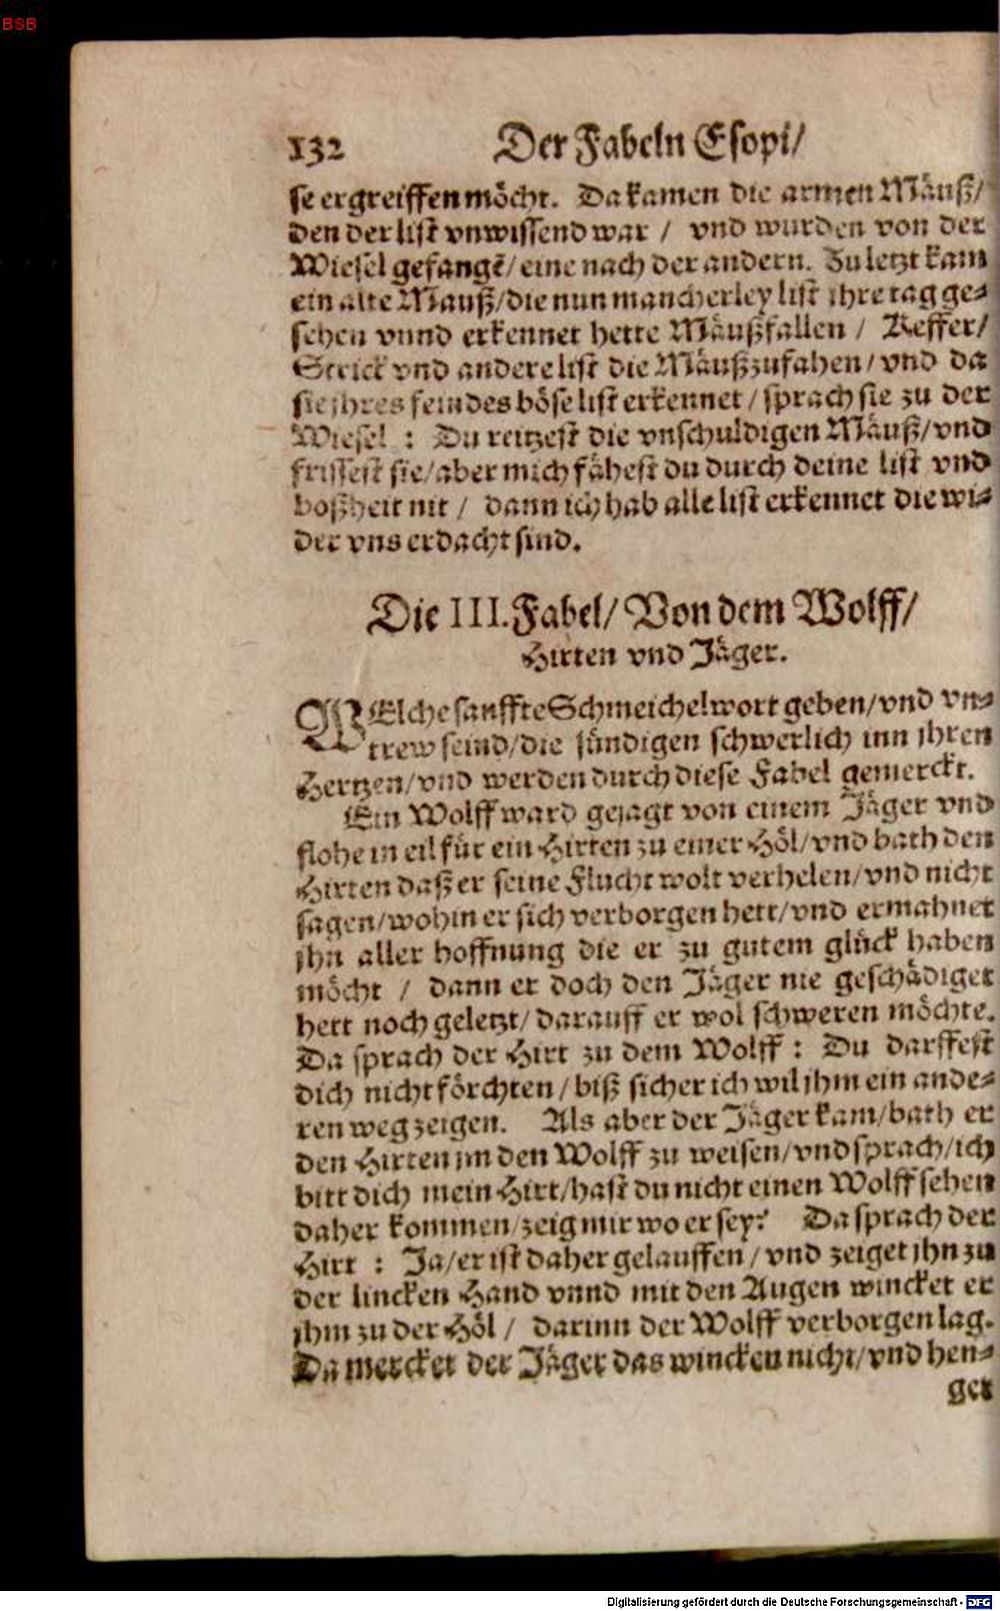 BSB
132 Der Fabeln Esopi/
se ergreiffen möcht. Da kamen die armen Mäuß/
den der list vnwissend war / vnd wurden von der
Wiesel gefangē/ eine nach der andern. Zu letzt kam
ein alte Mauß/ die nun mancherley list ihre tag ge-
sehen vnnd erkennet hette Mäußfallen / Keffer/
Strick vnd andere list die Mäuß zufahen/ vnd da
sie jhres feindes böse list erkennet / sprach sie zu der
Wiesel : Du reitzest die vnschuldigen Mäuß/ vnd
frissest sie/ aber mich fähest du durch deine list vnd
boßheit nit / dann ich hab alle list erkennet die wi-
der vns erdacht sind.
Die III. Fabel/ Von dem Wolff/
Hirten vnd Jäger.
WElche sanffte Schmeichelwort geben/ vnd vn-
trew seind/ die sündigen schwerlich inn jhren
Hertzen/ vnd werden durch diese Fabel gemerckt.
Ein Wolff ward gejagt von einem Jäger vnd
flohe in eil für ein Hirten zu einer Höl/ vnd bath den
Hirten daß er seine Flucht wolt verhelen/ vnd nicht
sagen/ wohin er sich verborgen hett/ vnd ermahnet
jhn aller hoffnung die er zu gutem glück haben
möcht / dann er doch den Jäger nie geschädiget
hett noch geletzt/ darauff er wol schweren möchte.
Da sprach der Hirt zu dem Wolff : Du darffest
dich nicht förchten / biß sicher ich wil jhm ein ande-
ren weg zeigen. Als aber der Jäger kam/ bath er
den Hirten jm den Wolff zu weisen/ vnd sprach/ ich
bitt dich mein Hirt/ hast du nicht einen Wolff sehen
daher kommen/ zeig mir wo er sey? Da sprach der
Hirt : Ja/ er ist daher gelauffen / vnd zeiget jhn zu
der lincken Hand vnnd mit den Augen wincket er
jhm zu der Höl / darinn der Wolff verborgen lag.
Da mercket der Jäger das wincken nicht/ vnd hen-
get
Digitalisierung gefördert durch die Deutsche Forschungsgemeinschaft - DFG